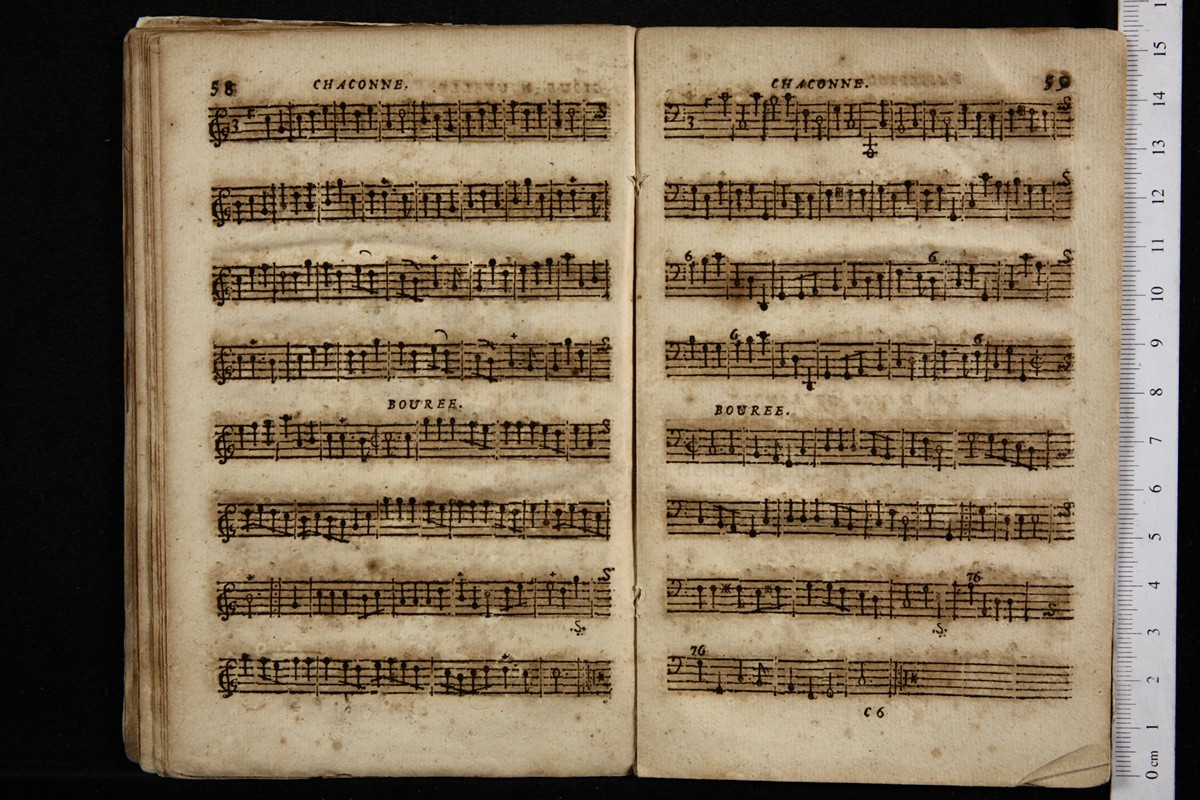 58 CHACONNE.
3
BOUREE.
.S.
CHACONNE. 59
3
6 6
6 6
BOUREE.
76
.S.
76
C 6
15
14
13
12
11
10
9
8
7
6
5
4
3
2
1
0 cm